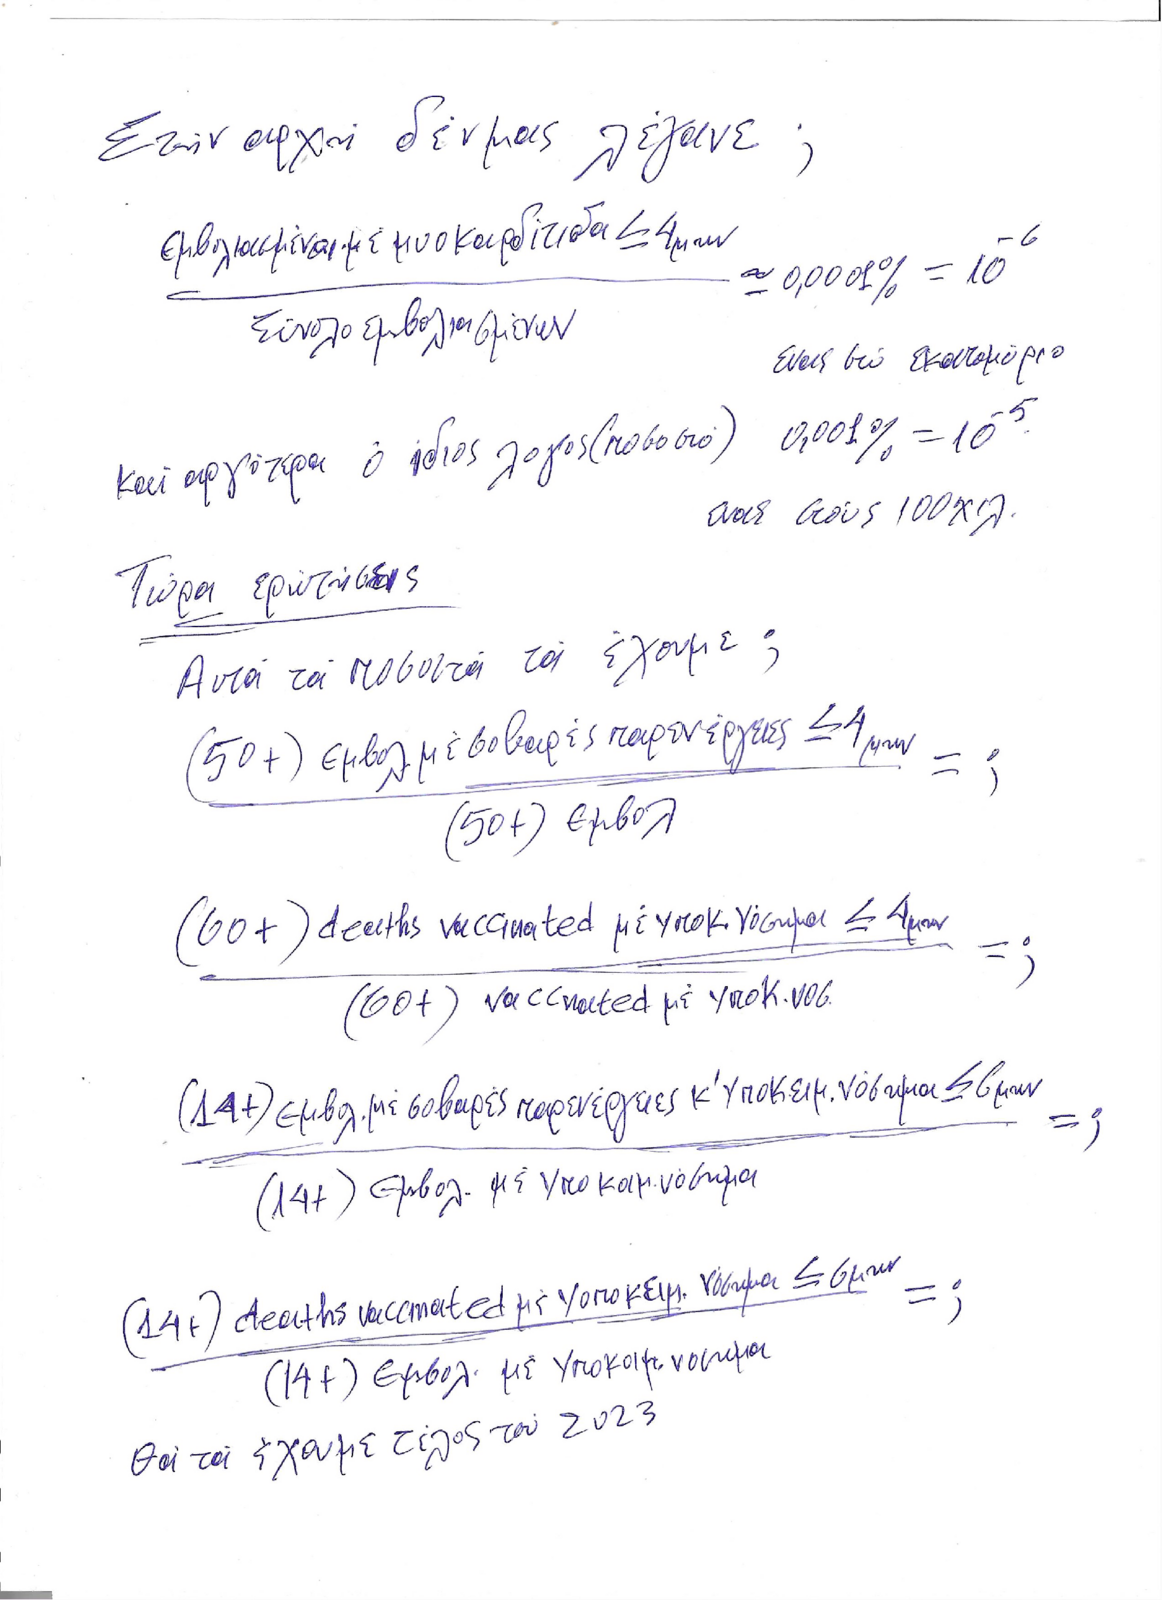 Στήν αρχή δέν μας λέγανε ;
εμβολιασμένοι με μυοκαρδίτιδα ≤ 4μην
≃ 0,0001% = 10⁻⁶
Σύνολο εμβολιασμένων
ενας στό εκατομύριο
Καί αργότερα ο ίδιος λογος (ποσοστό) 0,001% = 10⁻⁵
ενας στούς 100 χιλ.
Τώρα ερώτήσεις
Αυτά τά ποσοστά τά έχουμε ;
(50+) εμβολ μέ σοβαρές παρενέργειες ≤ 4μην = ;
(50+) εμβολ
(60+) deaths vaccinated μέ υποκ. νόσημα ≤ 4μην = ;
(60+) vaccinated μέ υποκ. νοσ.
(14+) εμβολ. μέ σοβαρές παρενέργειες κ' υποκειμ. νόσημα ≤ 6μην = ;
(14+) εμβολ. μέ υποκειμ. νόσημα
(14+) deaths vaccinated μέ υποκειμ. νόσημα ≤ 6μην = ;
(14+) εμβολ. μέ υποκειμ. νοσημα
Θά τά έχουμε τέλος τού 2023